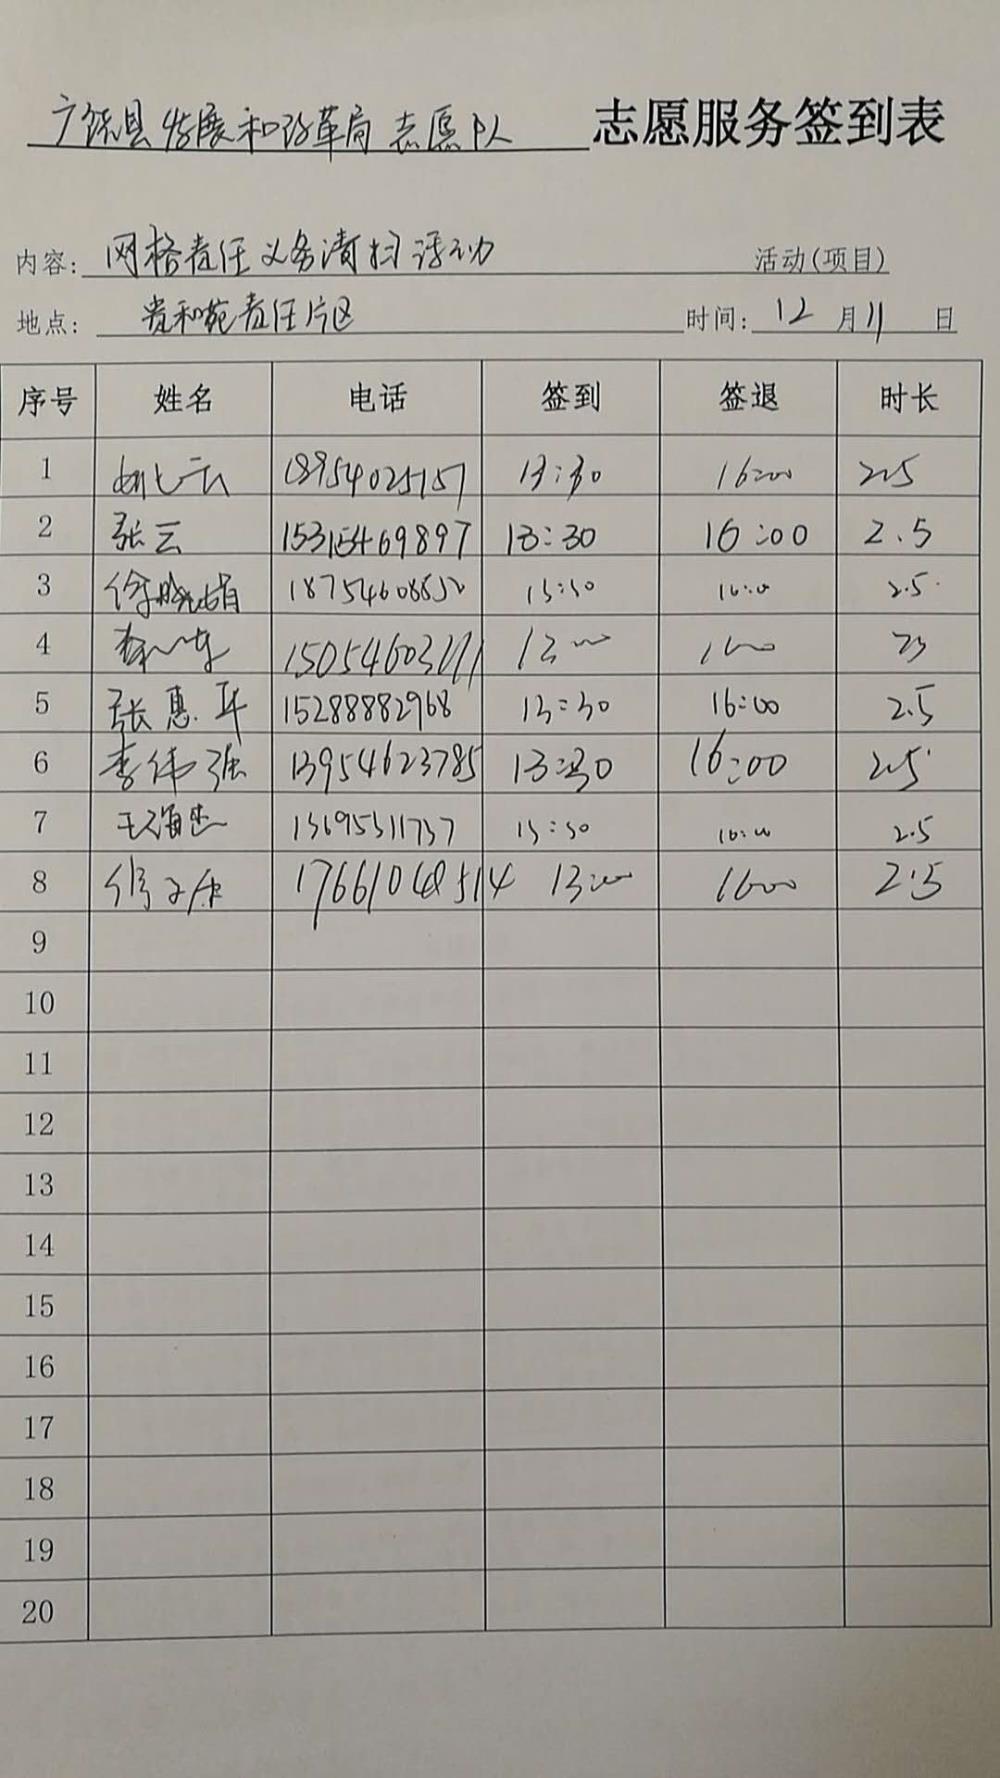 广饶县发展和改革局志愿队 志愿服务签到表
内容: 网格责任义务清扫活动 活动(项目)
地点: 贵和苑责任片区 时间: 12 月 11 日
序号 姓名 电话 签到 签退 时长
1 18954025157 13:30 16:00 2.5
2 张云 15315469897 13:30 16:00 2.5
3 徐晓娟 13:30 16:00 2.5
4
5 张惠 15288882968 13:30 16:00 2.5
6 李伟强 13954623785 13:30 16:00 2.5
7 王海 13695311737 13:30 16:00 2.5
8 13:00 1600 2.5
9
10
11
12
13
14
15
16
17
18
19
20